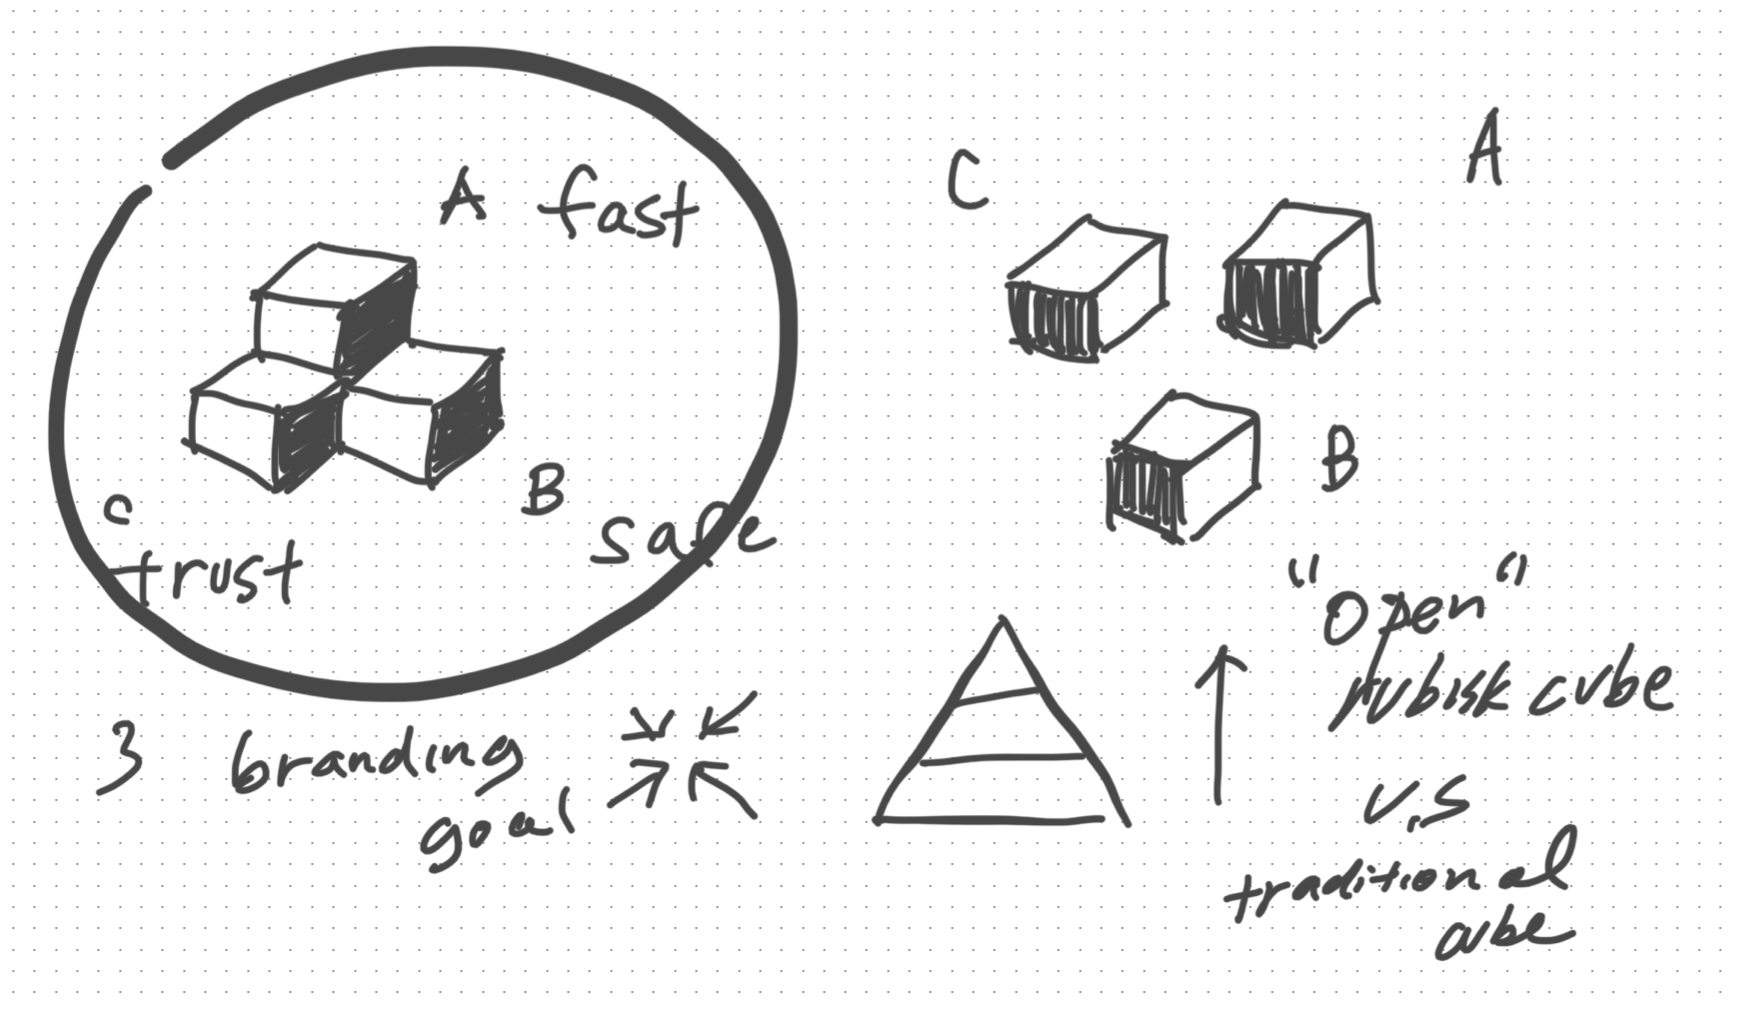 A fast
B
safe
C
trust
3 branding
goal
C
A
B
"open"
rubisk cube
v.s
traditional
cube